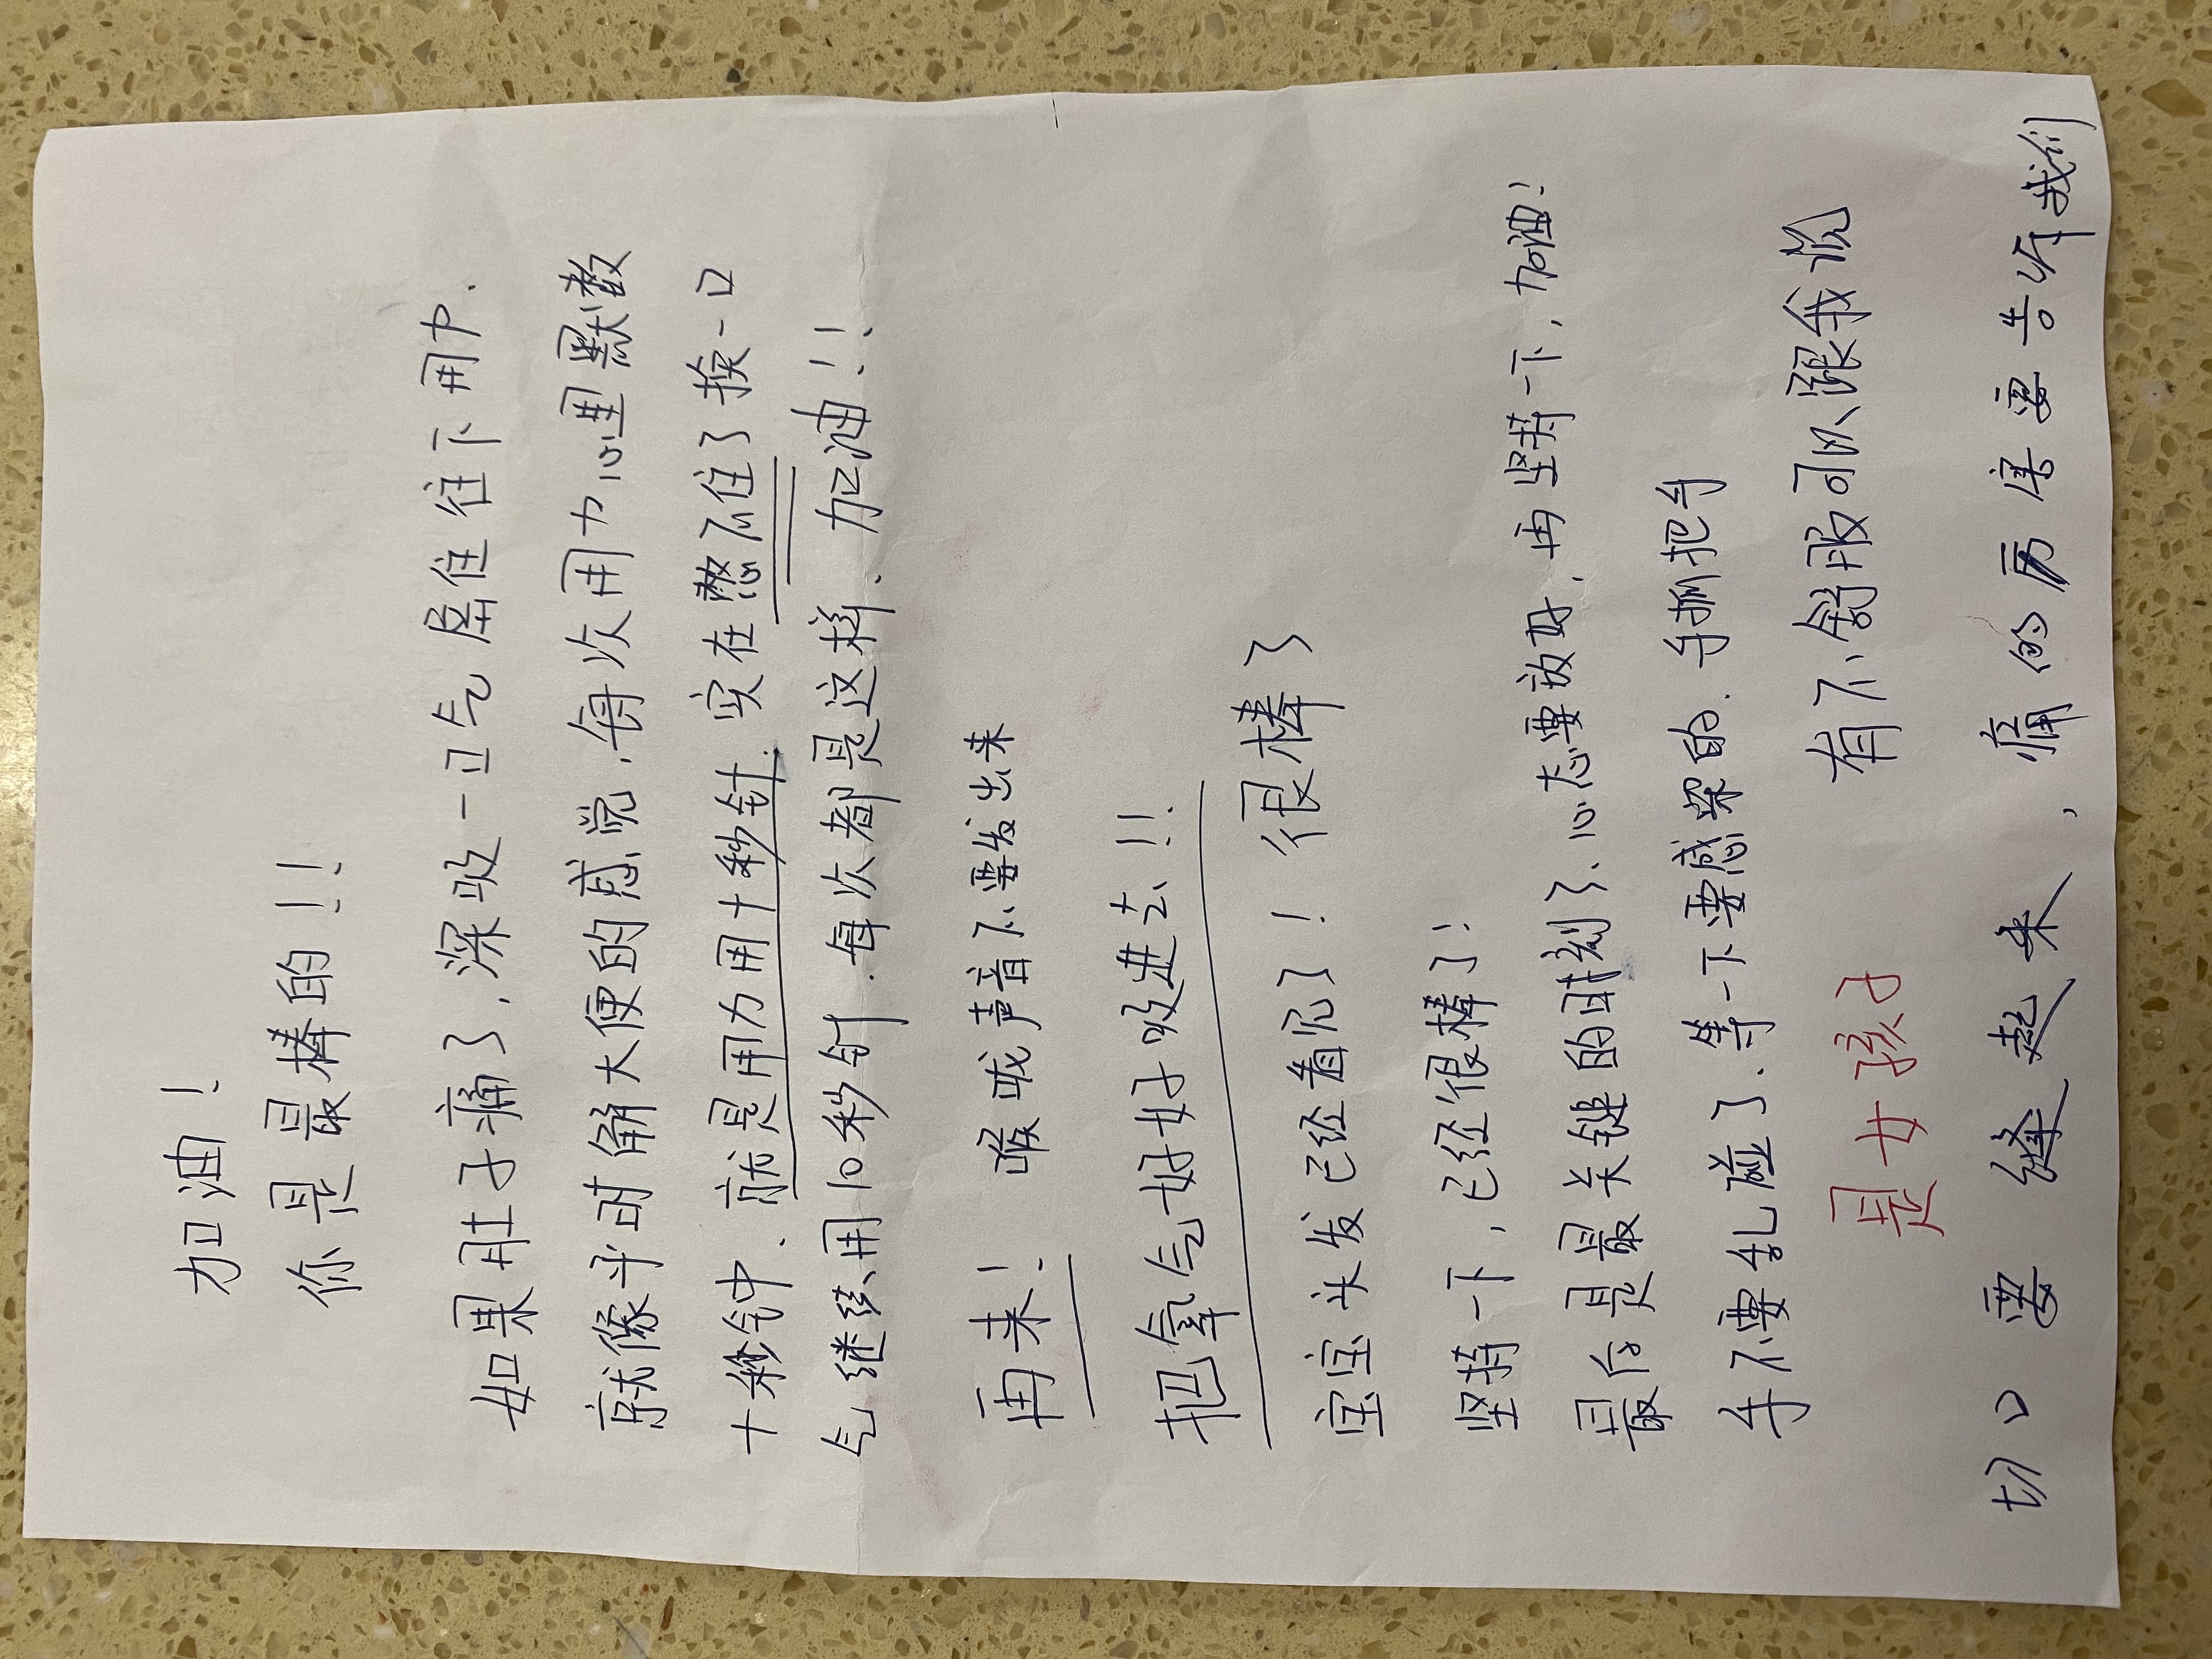 加油！
你是最棒的！！
如果肚子痛了，深吸一口气屏住往下用力.
就像平时解大便的感觉，每次用力心里默数
十秒钟、就是用力用十秒针.实在憋不住了换一口
气继续用10秒针.每次都是这样.加油！！
再来！ 喉咙声音不要发出来
把氧气好好吸进去！！
宝宝头发已经看见了！很棒了
坚持一下，已经很棒了！
最后是最关键的时刻了、心态要放好，再坚持一下，加油！
手不要乱碰了.等一下要感染的.手抓把手
是女孩子 有不舒服可以跟我说
切口要缝起来，痛的厉害要告诉我们